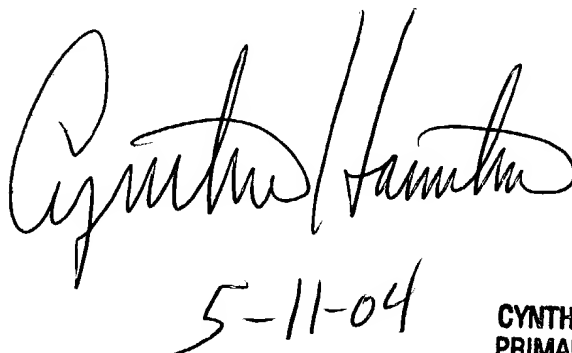 Cynthia Hamilton
5-11-04
CYNTH
PRIMA